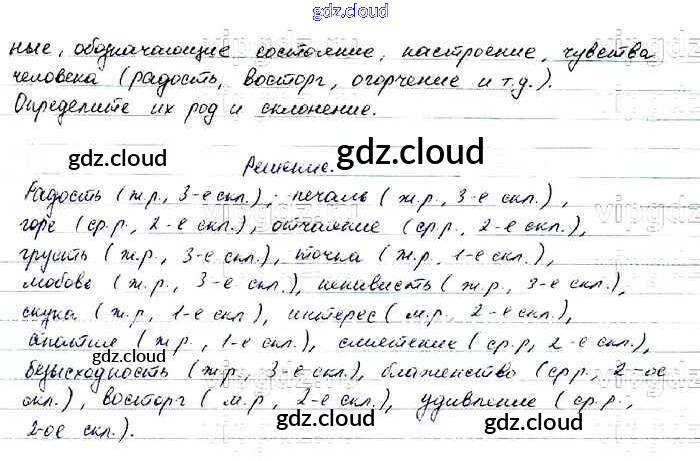 gdz.cloud
ные, обозначающие состояние, настроение, чувства
человека (радость, восторг, огорчение и т.д.).
Определите их род и склонение.
gdz.cloud
Решение.
gdz.cloud
Радость (ж.р., 3-е скл.), печаль (ж.р., 3-е скл.),
горе (ср.р., 2-е скл.), отчаяние (ср.р., 2-е скл.),
vipgdz
грусть (ж.р., 3-е скл.), тоска (ж.р., 1-е скл.),
gdz.cloud
любовь (ж.р., 3-е скл.), ненависть (ж.р., 3-е скл.),
скука (ж.р., 1-е скл.), интерес (м.р., 2-е скл.),
vipgdz
апатия (ж.р., 1-е скл.), смятение (ср.р., 2-е скл.),
gdz.cloud
безысходность (ж.р., 3-е скл.), блаженство (ср.р., 2-ое
gdz.cloud
скл.), восторг (м.р., 2-е скл.), удивление (ср.р.,
gdz.cloud
gdz.cloud
2-ое скл.).